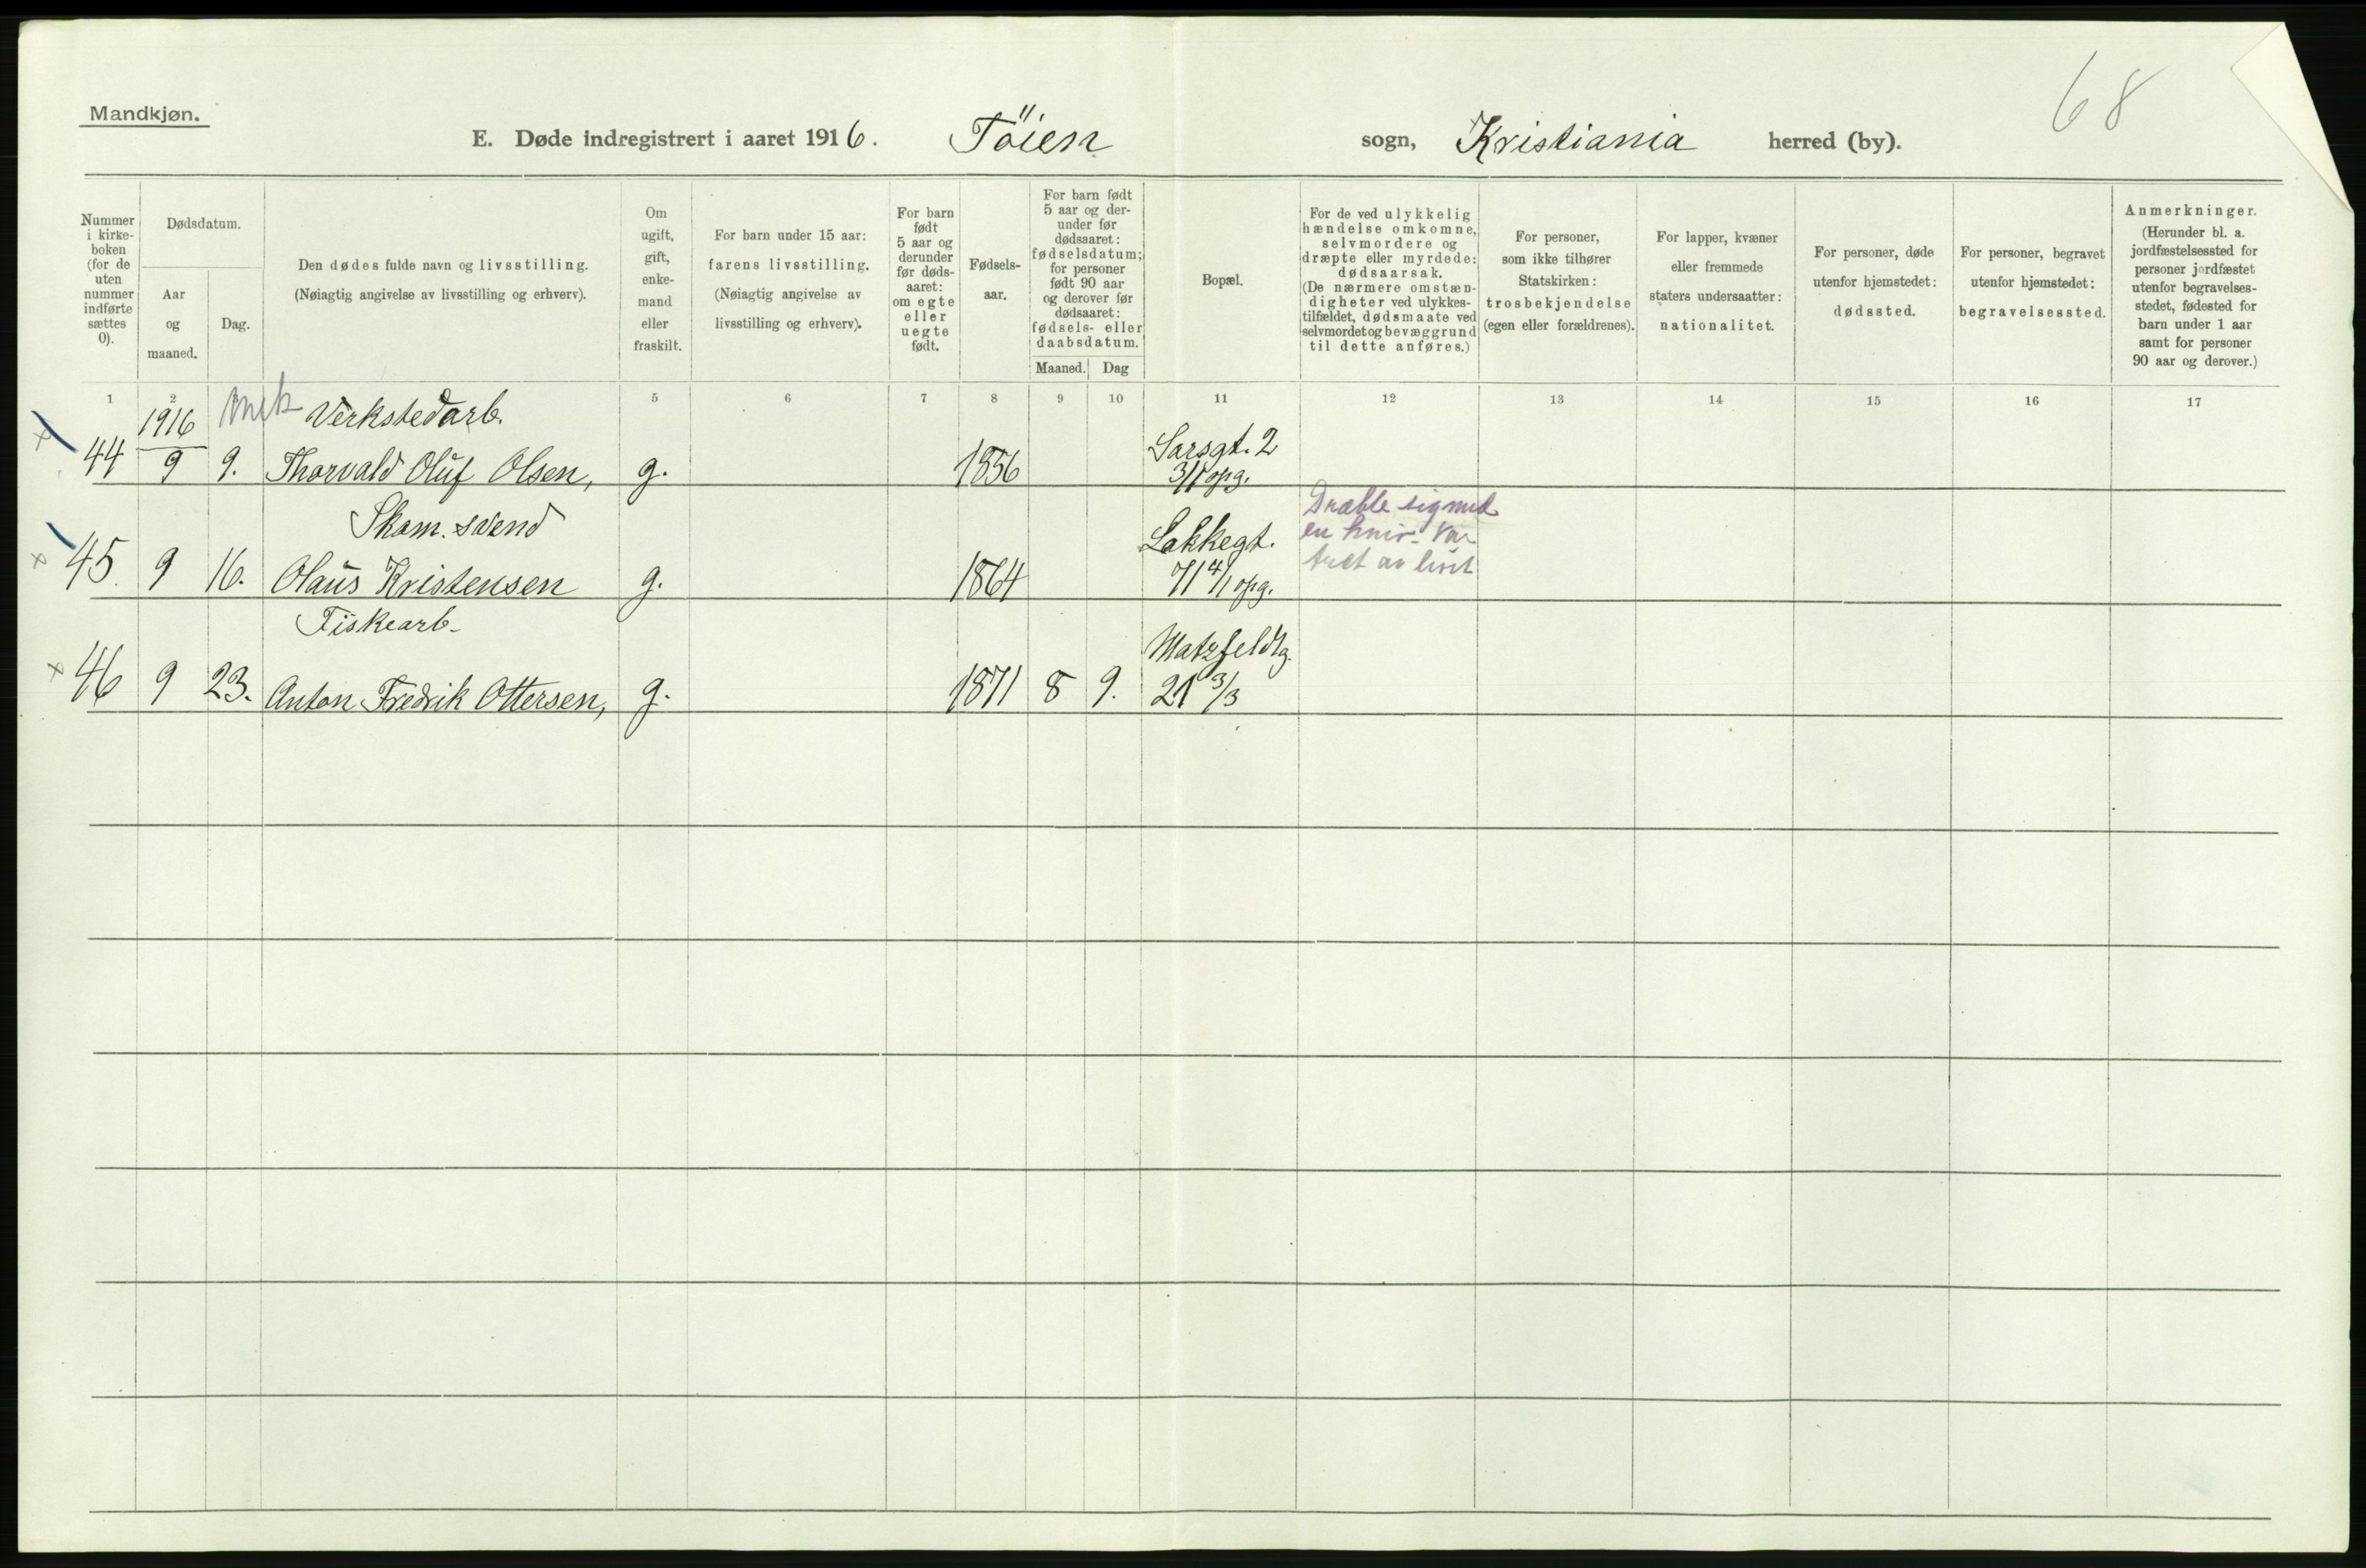 68
Mandkjøn.
E. Døde indregistrert i aaret 1916. Töien sogn, Kristiania herred (by).
Nummer i kirke-boken (for de uten nummer indførte sættes 0).
Dødsdatum.
Aar og maaned.
Dag.
Den dødes fulde navn og livsstilling.
(Nøiagtig angivelse av livsstilling og erhverv).
Om ugift, gift, enke-mand eller fraskilt.
For barn under 15 aar:
farens livsstilling.
(Nøiagtig angivelse av
livsstilling og erhverv).
For barn født 5 aar og derunder før døds-aaret: om egte eller uegte født.
Fødsels-aar.
For barn født 5 aar og der-under før dødsaaret: fødselsdatum; for personer født 90 aar og derover før dødsaaret: fødsels- eller daabsdatum.
Maaned. Dag
Bopæl.
For de ved ulykkelig hændelse omkomne, selvmordere og dræpte eller myrdede: dødsaarsak. (De nærmere omstæn-digheter ved ulykkes-tilfældet, dødsmaate ved selvmordet og bevæggrund til dette anføres.)
For personer, som ikke tilhører Statskirken: trosbekjendelse (egen eller forældrenes).
For lapper, kvæner eller fremmede staters undersaatter: nationalitet.
For personer, døde utenfor hjemstedet: dødssted.
For personer, begravet utenfor hjemstedet: begravelsessted.
Anmerkninger. (Herunder bl. a. jordfæstelsessted for personer jordfæstet utenfor begravelses-stedet, fødested for barn under 1 aar samt for personer 90 aar og derover.)
1 2 5 6 7 8 9 10 11 12 13 14 15 16 17
1916 mek Verkstedarb.
44 9 9. Thorvald Oluf Olsen, g. 1856 Sarsgt. 2
3/1 opg.
Skom. svend
45. 9 16. Olaus Kristensen g. 1864 Lakkegt.
71 4/1 opg.
Dræbte sig med
en kniv. Var
træt av livet
Fiskearb.
46 9 23. Anton Fredrik Ottersen, g. 1871 8 9. Matzfeldtg.
21 3/3